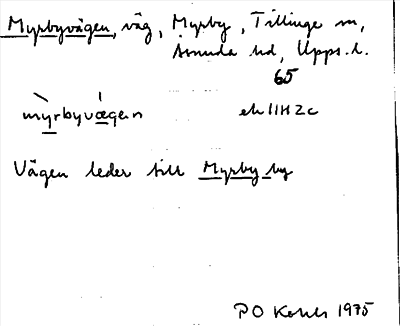 Myrbyvägen, väg, Myrby, Tillinge sn,
Åsunda hd, Upps. l.
65
mỳrbyvǽgen ek 11H2c
Vägen leder till Myrby by
P O 1975